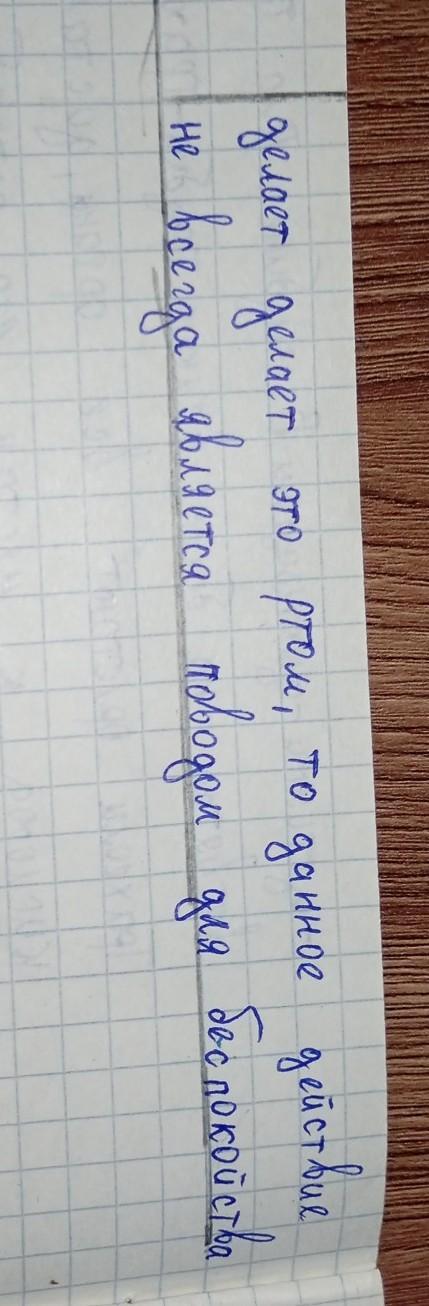 делает делает это ртом, то данное действие
не всегда является поводом для беспокойства